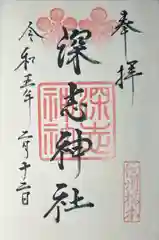 奉拝
深志神社
深志神社
令和五年 二月十二日